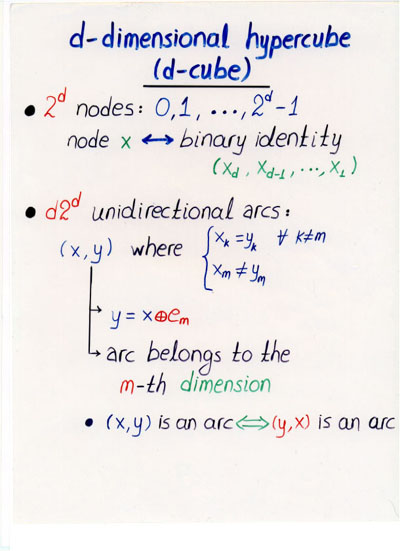 d-dimensional hypercube
(d-cube)
• 2^d nodes: 0,1, ..., 2^d-1
node x ↔ binary identity
(x_d, x_{d-1}, ..., x_1)
• d2^d unidirectional arcs:
(x,y) where { x_k = y_k ∀ k≠m
x_m ≠ y_m
→ y = x⊕e_m
→ arc belongs to the
m-th dimension
• (x,y) is an arc ⇔ (y,x) is an arc